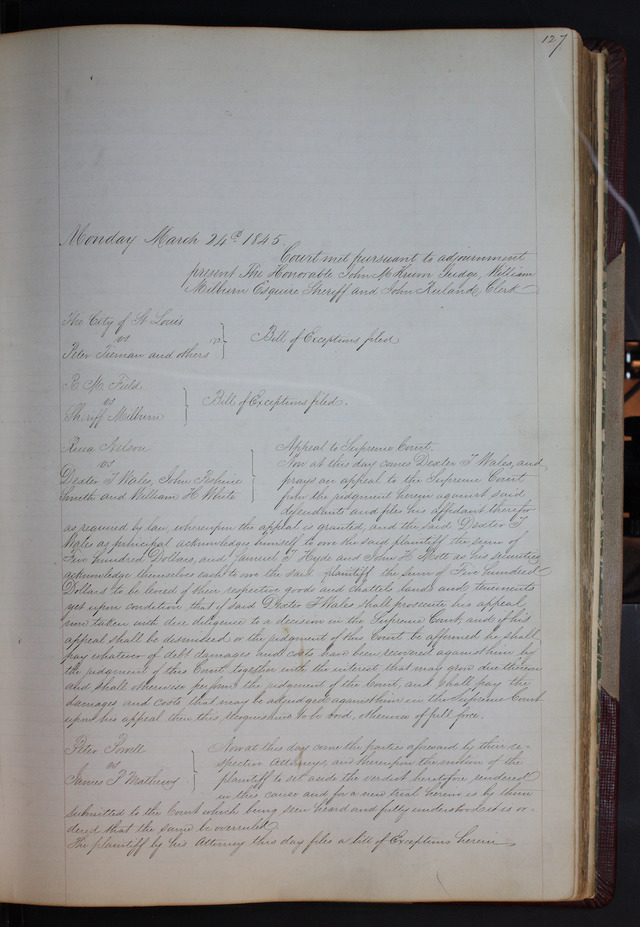 127
Monday March 24th 1845
Court met pursuant to adjournment
present The Honorable John M Krum Judge, William
Milburn Esquire Sheriff and John Ruland, Clerk
The City of St Louis
vs
Peter Tiernan and others
Bill of Exceptions filed
R. M. Field
vs
Sheriff Milburn
Bill of Exceptions filed.
Nelson
vs
Dexter T Wales, John
Smith and William H White
Appeal to Supreme Court.
Now at this day comes Dexter T Wales, and
prays an appeal to the Supreme Court
from the judgment herein against said
defendants and files his affidavit therefor
as required by law, whereupon the appeal is granted, and the said Dexter T
Wales as principal acknowledges himself to owe the said plaintiff the sum of
Five hundred Dollars, and Samuel T Hyde and John H Mott as his securities
acknowledge themselves each to owe the said plaintiff the sum of Five hundred
Dollars to be levied of their respective goods and chattels lands and tenements
yet upon condition that if said Dexter T Wales shall prosecute his appeal
now taken with due diligence to a decision in the Supreme Court, and if his
appeal shall be dismissed or the judgment of this Court be affirmed he shall
pay whatever of debt damages and costs have been recovered against him by
the judgment of this Court together with the interest that may grow due thereon
and shall otherwise perform the judgement of the Court, and shall pay the
damages and costs that may be adjudged against him in the Supreme Court
upon his appeal then this Recognizance to be void, otherwise of full force.
Peter Powell
vs
James P Mathews
Now at this day come the parties aforesaid by their re-
spective Attorneys, and thereupon the motion of the
plaintiff to set aside the verdict heretofore rendered
in this cause and for a new trial herein is by them
submitted to the Court which being seen heard and fully understood it is or-
dered that the same be overruled.
The plaintiff by his Attorney this day files a bill of Exceptions herein.